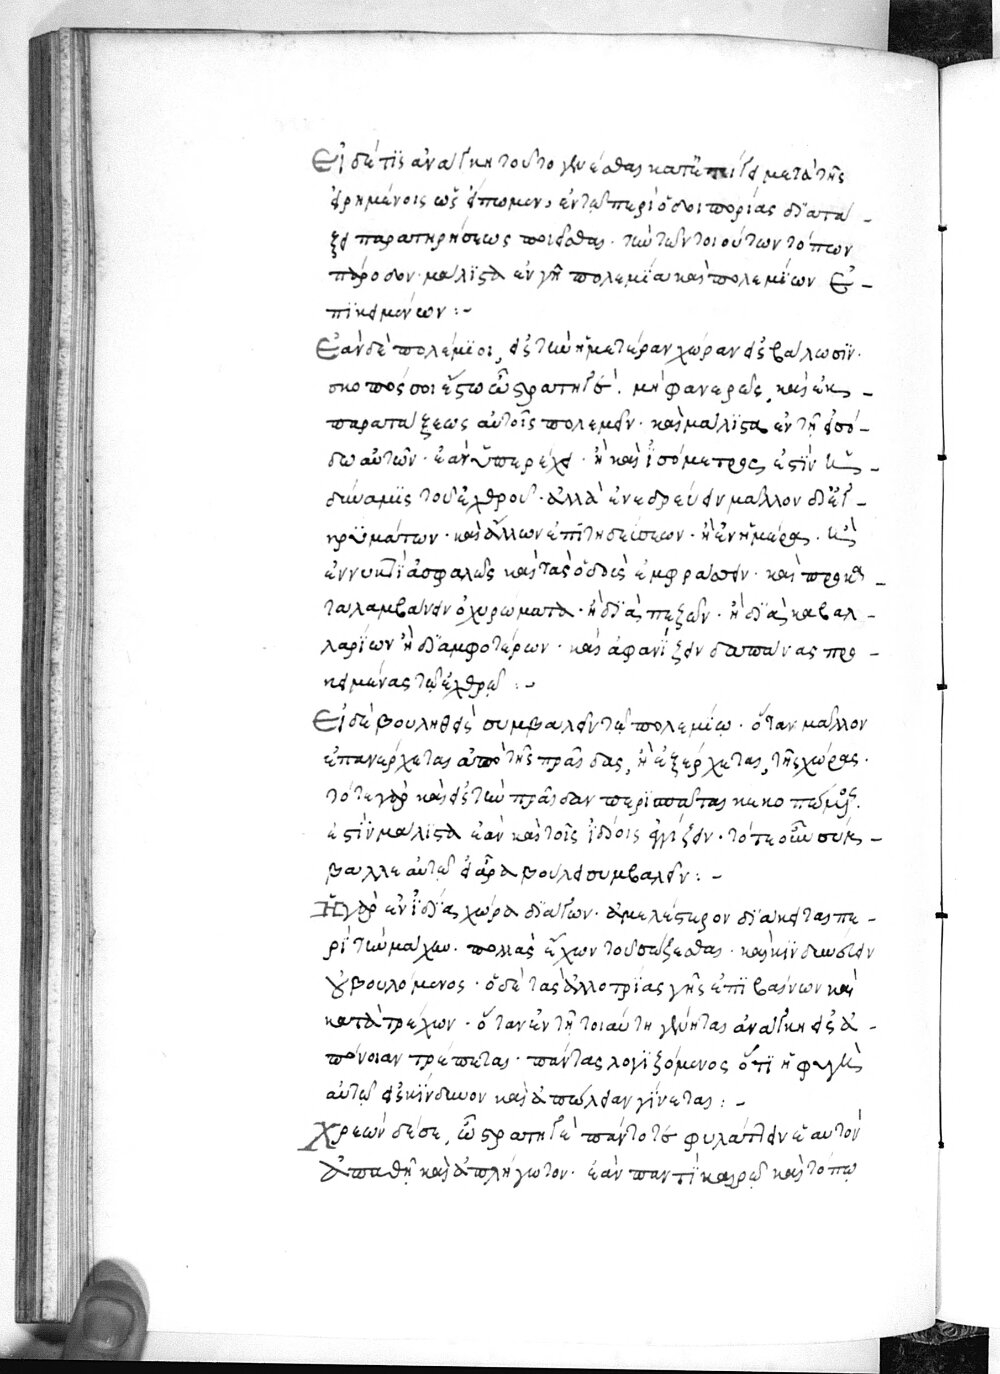 Εἰ δέ τὶς ἀνάγκη τοῦτο γενέσθαι κατεπείγει μετὰ τῆς
εἰρημένοις ὡς εἴπωμεν, ἐν τῷ περὶ ὁδοιπορίας διατά-
ξει παρατηρήσεως ποιεῖσθαι· τὴν τῶν τοιούτων τόπων
πάροδον· μάλιστα ἐν γῆ πολεμία καὶ πολεμίων ἐ-
πικειμένων :-
Ἐὰν δὲ πολέμιοι, εἰς τὴν ἡμετέραν χώραν εἰσβάλωσιν·
σκοπός σοι ἔστω ὦ στρατηγέ· μὴ φανερῶς, καὶ ἐκ
παρατάξεως αὐτοῖς πολεμεῖν· καὶ μάλιστα ἐν τῆ εἰσό-
δω αὐτῶν· ἐὰν ὑπερέχει· ἢ καὶ ἰσόμετρος ἐστὶν ἡ
δύναμις τοῦ ἐχθροῦ· ἀλλὰ ἐνεδρεύειν μᾶλλον δι' ἐγ-
κρυμάτων· καὶ ἄλλων ἐπιτηδεύσεων· ἢ ἐν ἡμέρα· καὶ
ἐν νυκτὶ ἀσφαλῶς καὶ τὰς ὁδοὺς ἐμφράσσειν· καὶ προκα-
ταλαμβάνειν ὀχυρώματα· ἢ διὰ πεζῶν· ἢ διὰ καβαλ-
λαρίων ἢ δι' ἀμφοτέρων· καὶ ἀφανίζειν δαπάνας προ-
κειμένας τῷ ἐχθρῷ :-
Εἰ δὲ βουληθεὶς συμβαλεῖν τῷ πολεμίῳ· ὅταν μᾶλλον
ἐπανέρχεται ἀπὸ τῆς πραίδας, ἢ ἐξέρχεται, τῆς χώρας·
τότε γὰρ καὶ εἰς τὴν πραίδαν περισπᾶται κεκοπωμένος·
ἐστὶν μάλιστα ἐὰν καὶ τοῖς ἰδίοις ἐγγίζειν· τότε οὖν σύμ-
βαλλε αὐτῷ ἐὰν ἄρα βούλει συμβαλεῖν :-
Ἡ γὰρ ἐν ἰδία χώρα διάγων· ἀμελέστερον διάκειται πε-
ρὶ τὴν μάχην· πολλὰς ἔχων τοῦ σώζεσθαι· καὶ κινδυνεύειν
οὐ βουλόμενος· ὁ δὲ τὰς ἀλλοτρίας γῆς ἐπιβαίνων καὶ
κατὰ τρέχων· ὅταν ἐν τῆ τοιαύτη γένηται ἀνάγκη εἰς ἀ-
πόνοιαν τρέπεται· πάντας λογιζόμενος ὅτι ἡ φυγὴ
αὐτῷ εἰς κίνδυνον καὶ ἀπώλειαν γίνεται :-
Χρεών δέ σε, ὦ στρατηγέ πάντοτε φυλάττειν ἑαυτὸν
ἀπαθῆ καὶ ἀπλήγωτον· ἐὰν παντὶ καιρῷ καὶ τόπῳ